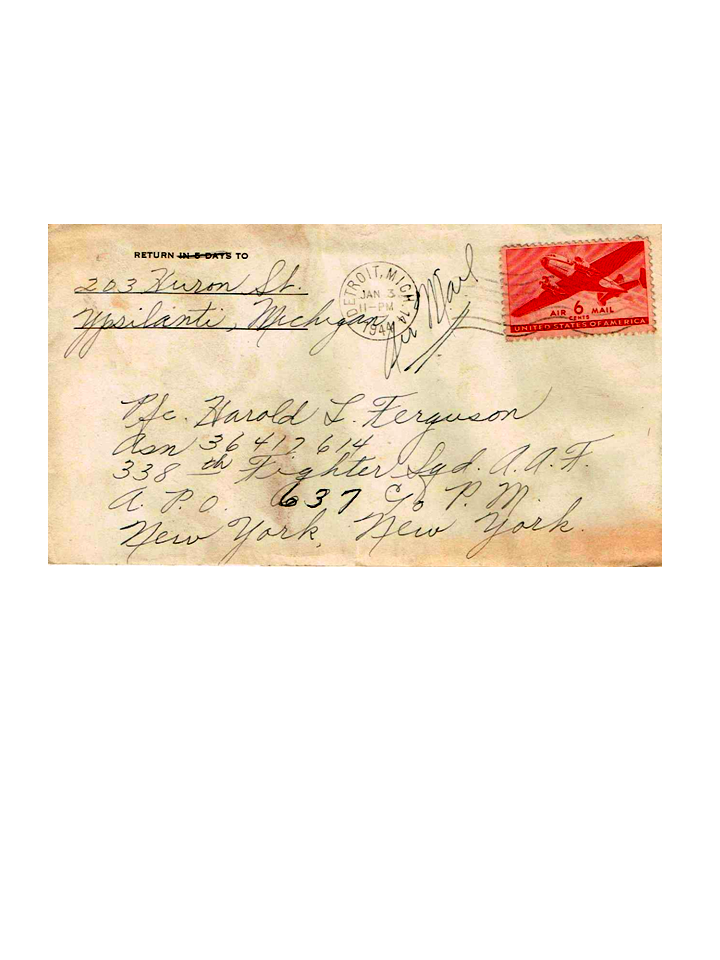 RETURN IN 5 DAYS TO
203 Huron St.
Ypsilanti, Michigan
DETROIT, MICH. 14
JAN 3
11-PM
1944
Air Mail
AIR 6 MAIL
CENTS
UNITED STATES OF AMERICA
Pfc. Harold L. Ferguson
Asn 36417614
338th Fighter Sqd. A.A.F.
A. P. O. 637 C/o P. M.
New York, New York.